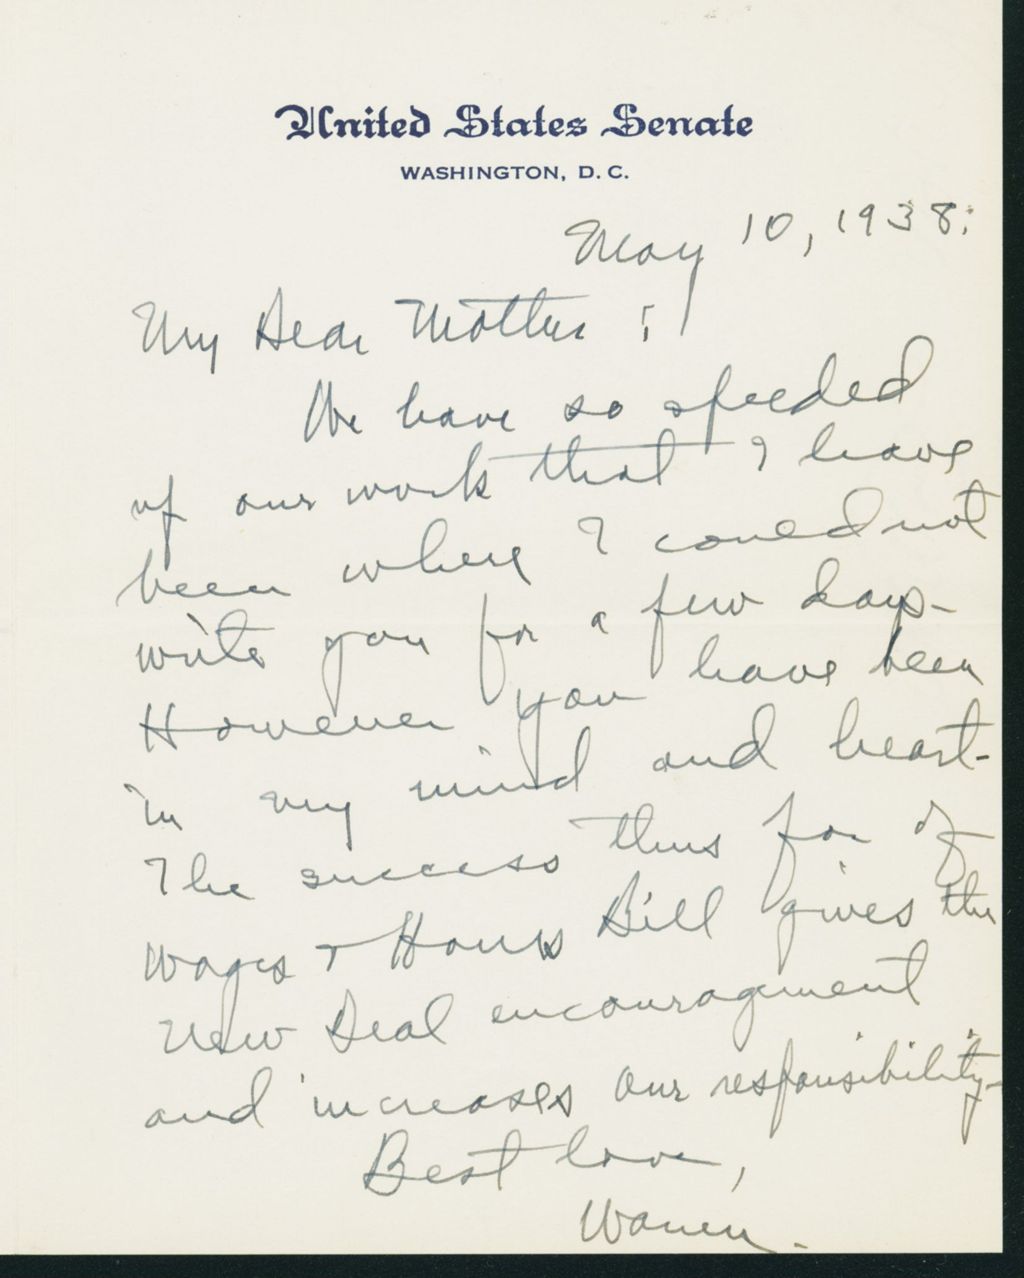 United States Senate
WASHINGTON, D. C.
May 10, 1938.
My Dear Mother :
We have so speeded
up our work that I have
been where I could not
write you for a few days-
However you have been
in my mind and heart-
The success thus far of
Wages + Hours Bill gives the
New Deal encouragement
and increases our responsibility-
Best love,
Warren.